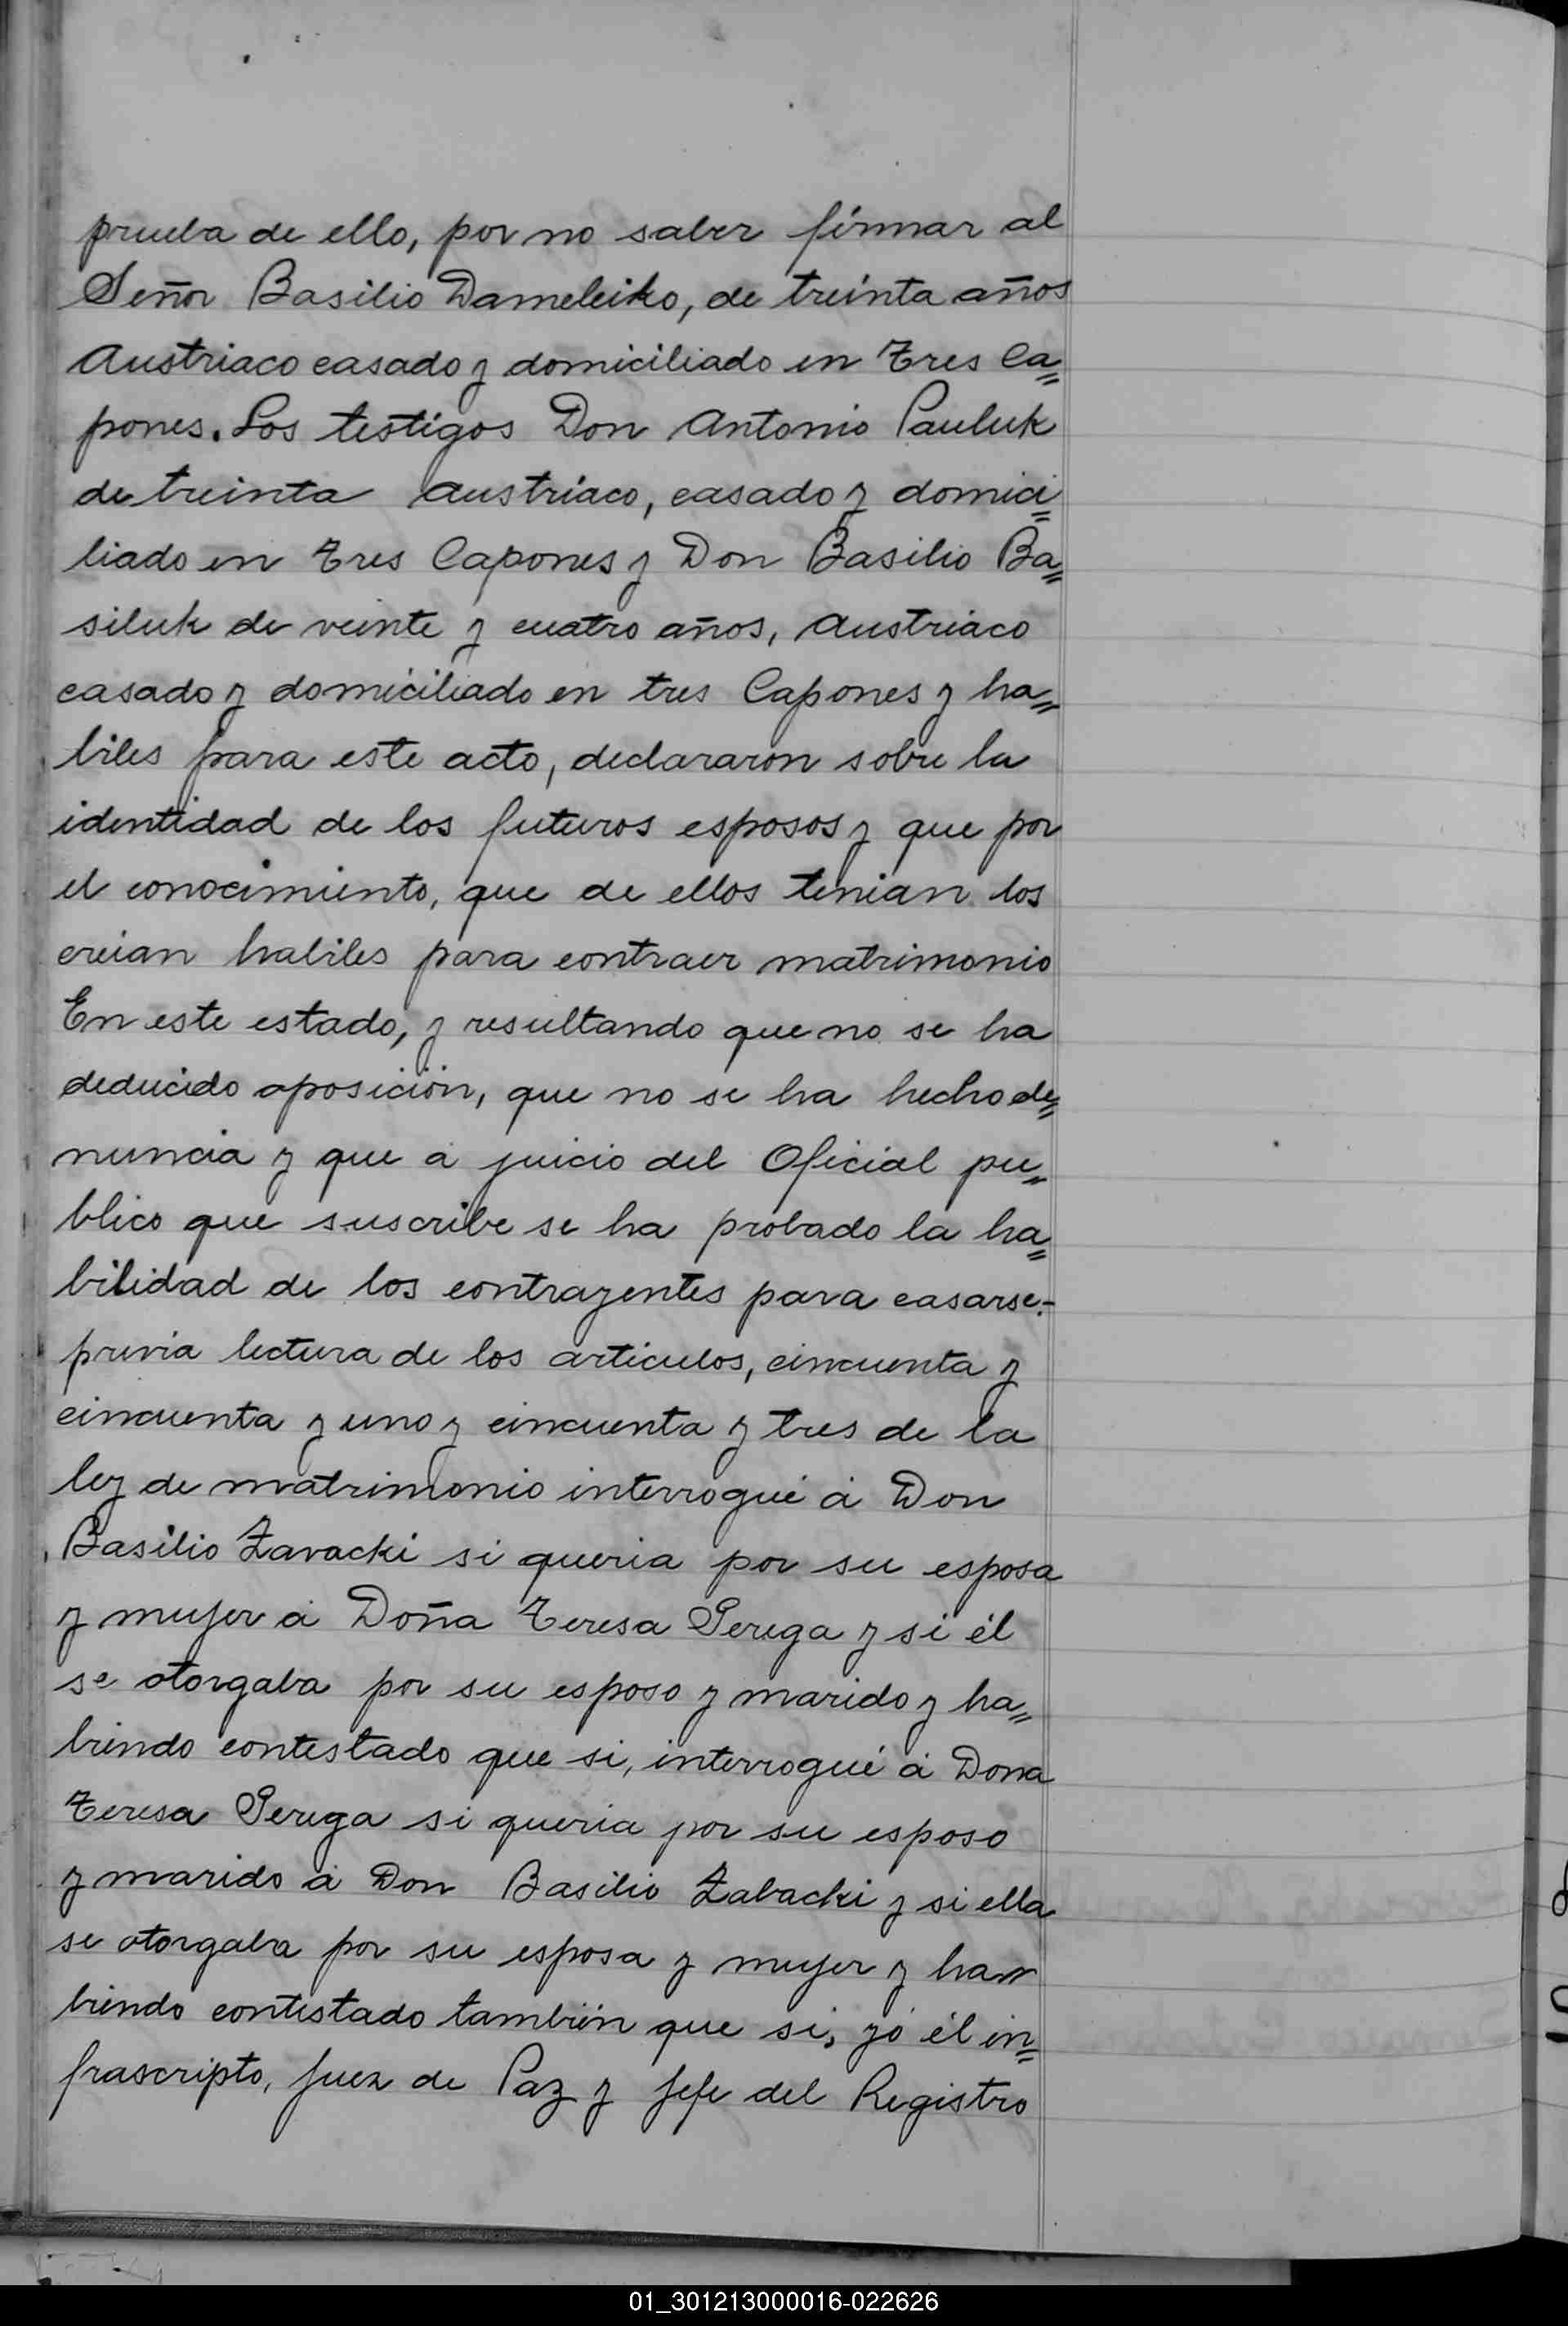 prueba de ello, por no saber firmar al
Señor Basilio Dameleiko, de treinta años
Austriaco casado y domiciliado en Tres Ca=
pones. Los testigos Don Antonio Pauluk
de treinta Austriaco, casado y domici=
liado en Tres Capones y Don Basilio Ba=
siluk de veinte y cuatro años, Austriaco
casado y domiciliado en tres Capones y ha=
biles para este acto, declararon sobre la
identidad de los futuros esposos y que por
el conocimiento, que de ellos tenian los
creian habiles para contraer matrimonio
En este estado, y resultando que no se ha
deducido oposición, que no se ha hecho de=
nuncia y que á juicio del Oficial pu=
blico que suscribe se ha probado la ha=
bilidad de los contrayentes para casarse.-
previa lectura de los articulos, cincuenta y
cincuenta y uno y cincuenta y tres de la
ley de matrimonio interrogué á Don
Basilio Zavacki si queria por su esposa
y mujer á Doña Teresa Perega y si él
se otorgaba por su esposo y marido y ha=
biendo contestado que si, interrogué á Dona
Teresa Perega si queria por su esposo
y marido á Don Basilio Zabacki y si ella
se otorgaba por su esposa y mujer y ha=
biendo contestado también que si, yó él in=
frascripto, Juez de Paz y Jefe del Registro
01_301213000016-022626